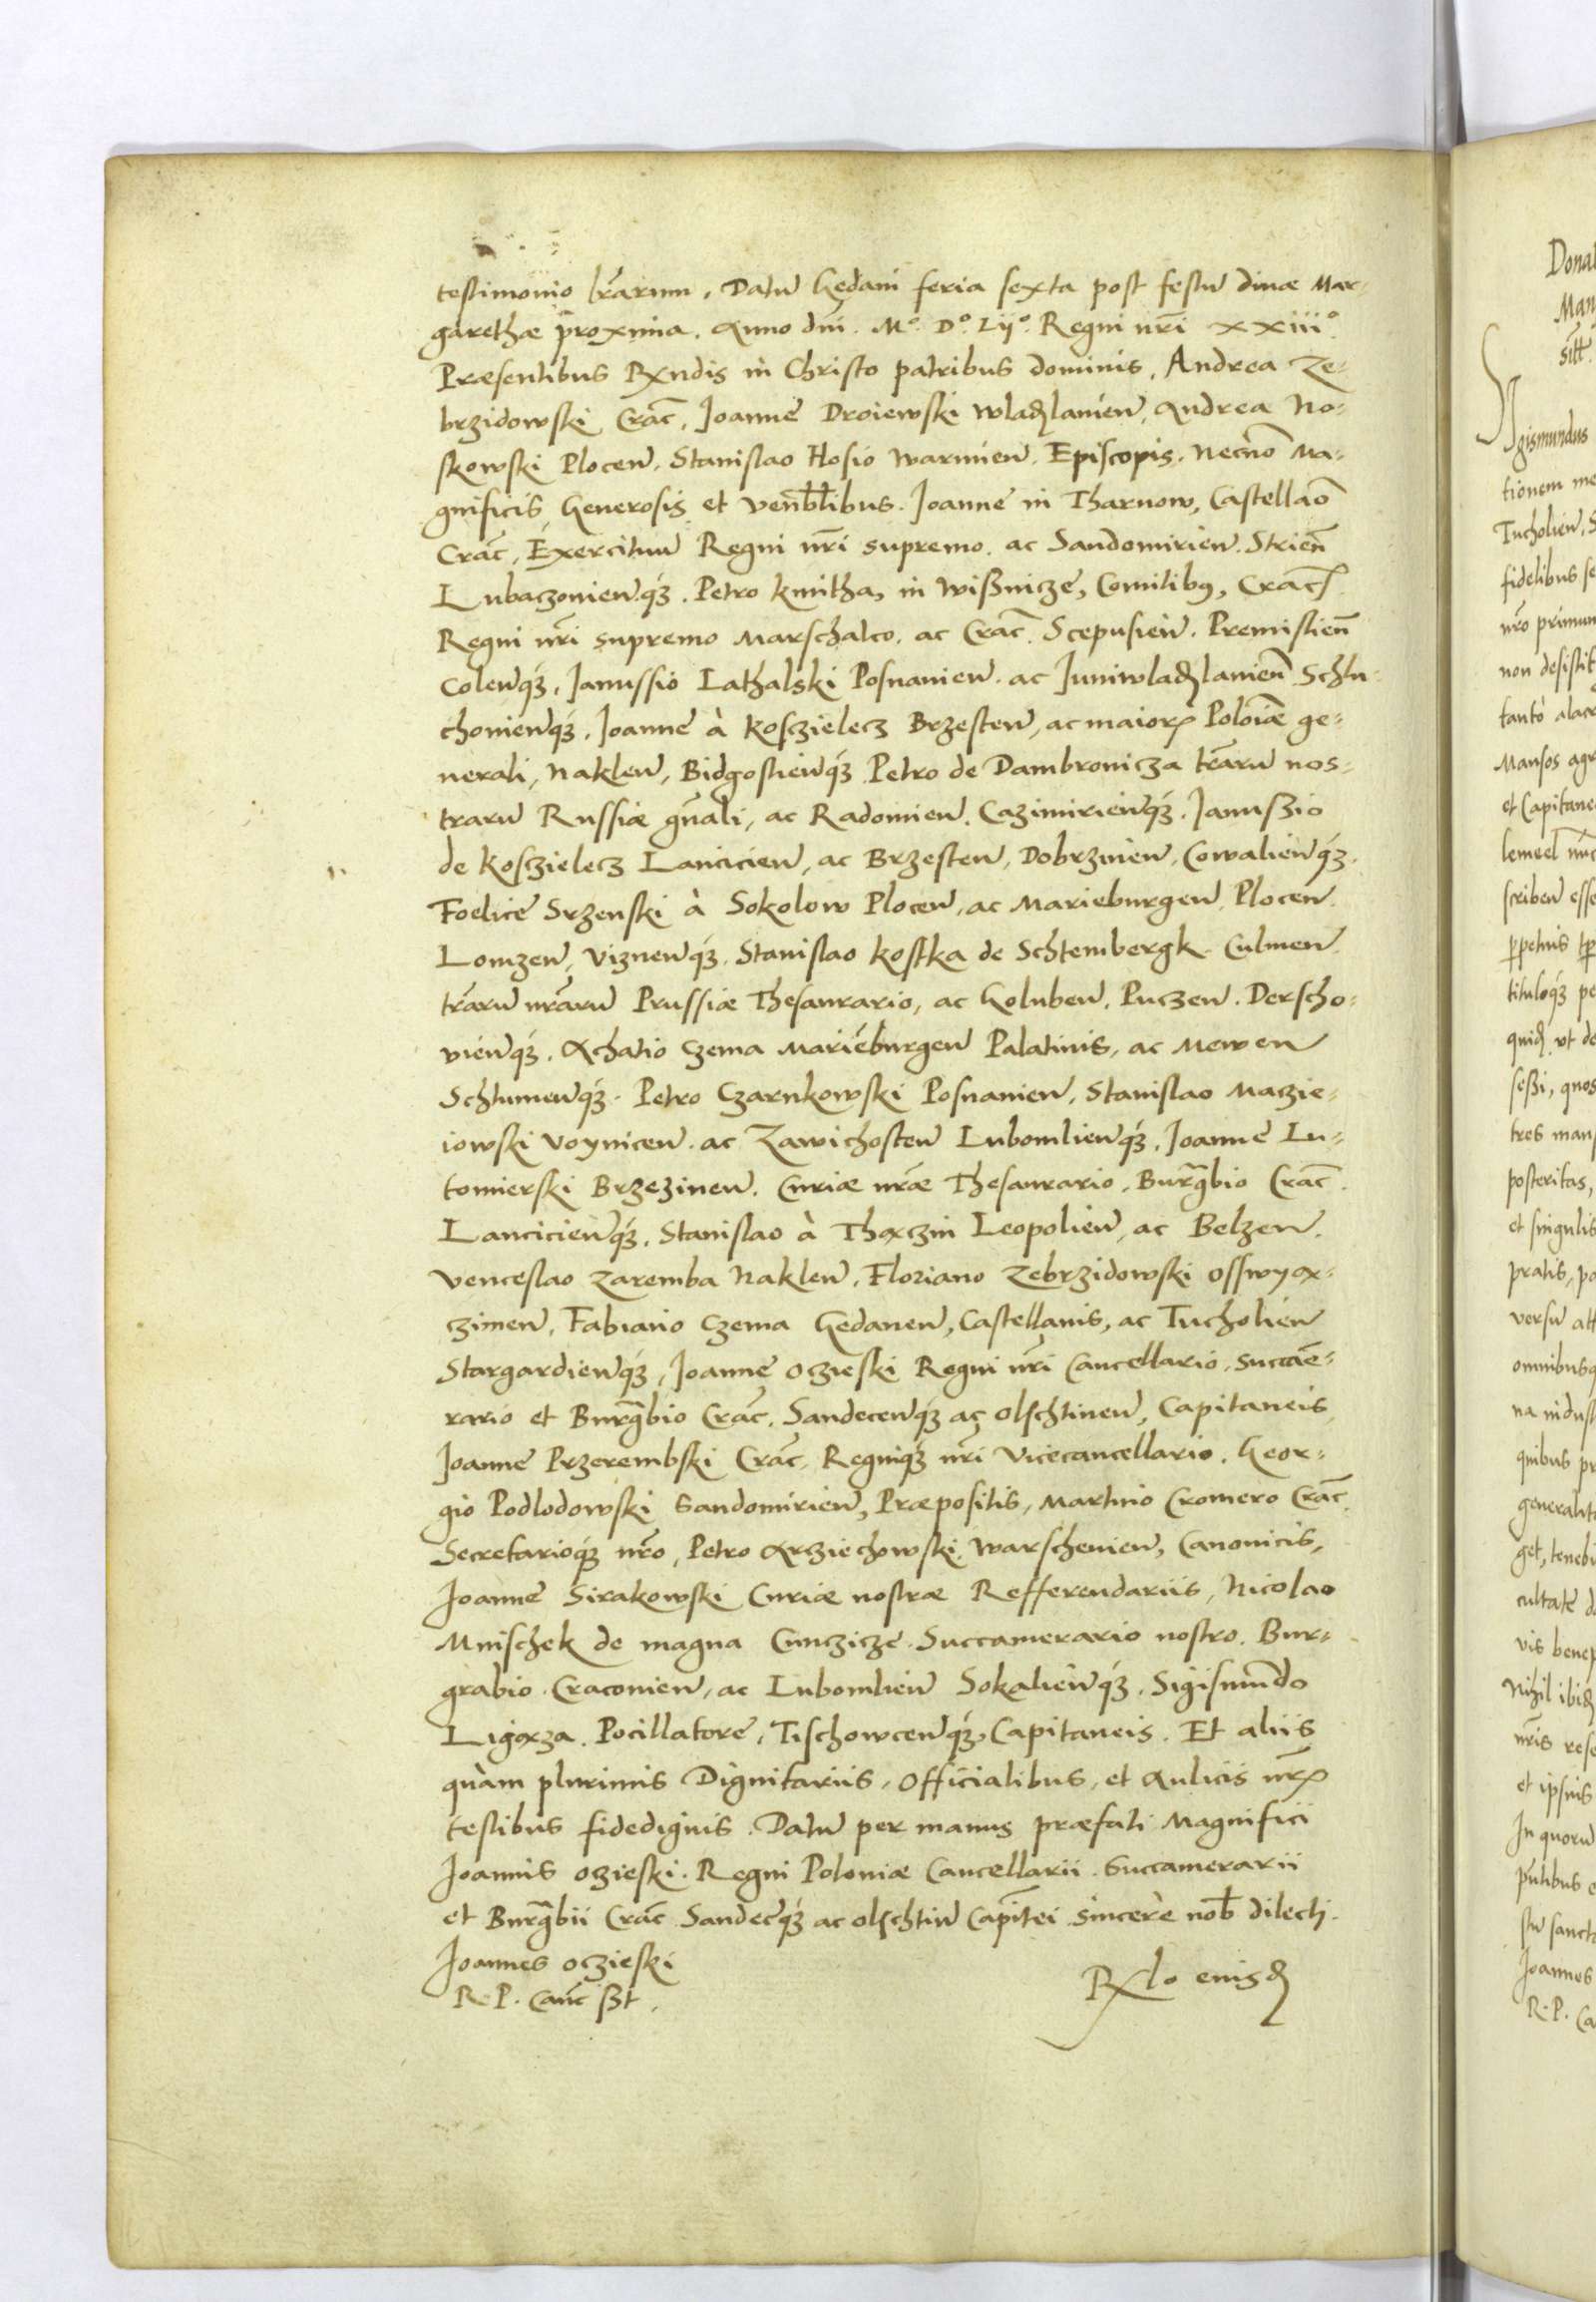 testimonio lrãrum. Datũ Gedani feria sexta post festũ diuæ Mar-
garethæ p̃roxima. Anno dñi. Mº. Dº. Lijº. Regni nr̃i xxiiiº
Præsentibus Rx̃ndis in Christo patribus dominis, Andrea Ze-
brzidowski Crac̃, Joanne Droiewski wladzlauien̄, Andrea No-
skowski Plocen̄. Stanislao Hosio warmien̄. Episcopis. Necnõ Ma-
gnificis Generosis et venb̃libus. Joanne in Tharnow, Castellaõ
Crac̃, Exercituũ Regni nr̃i supremo. ac Sandomirien̄. Strien̄
Lubaczouien̄q́ꝫ. Petro kmitha, in Wißnicze, Comitibꝰ, Crac̃
Regni nr̃i supremo Marschalco. ac Crac̃. Scepusien̄. Premislien̄
Colen̄q́ꝫ, Janussio Lathalski Posnanien̄. ac Juniwladzlauien̄ Schlu-
chouien̄q́ꝫ, Joanne à Kosczielecz Brzesten̄, ac maiorꝫ Poloiæ̃ ge-
nerali, Naklen̄, Bidgostien̄q́ꝫ Petro de Dambronicza tr̃arũ nos-
trarũ Russiæ gñali, ac Radomien̄. Cazimirien̄q́ꝫ. Janußio
de Kosczielecz Lancicien̄, ac Brzesten̄, Dobrzinien̄, Cowalien̄q́ꝫ.
Foelice Srzenski à Sokolow Plocen̄, ac Marieburgen̄ Plocen̄.
Lomzen̄, Viznen̄q́ꝫ. Stanislao Kostka de Schtembergk Culmen̄
tr̃arũ nr̃arũ Prussiæ Thesaurario, ac Goluben̄. Puczen̄. Derscho-
uien̄q́ꝫ. Achatio Czema Marieburgen̄ Palatinis, ac Mewen̄
Schtumen̄q́ꝫ. Petro Czarnkowski Posnanien̄, Stanislao Maczie-
iowski Voynicen̄. ac Zawichosten̄ Lubomlien̄q́ꝫ. Joanne Lu-
tomierski Brzezinen̄. Curiæ nr̃æ Thesaurario. Burg̃bio Crac̃.
Lancicien̄q́ꝫ. Stanislao à Thaczin Leopolien̄, ac Belzen̄.
Venceslao Zaremba Naklen̄. Floriano Zebrzidowski Osswya-
czimen̄, Fabiano Czema Gedanen̄, Castellanis, ac Tucholien̄
Stargardien̄q́ꝫ, Joanne Oczieski Regni nr̃i Cancellario, Succãe-
rario et Burg̃bio Crac̃. Sandecen̄q́ꝫ ac Olschtinen̄, Capitaneis
Joanne Przerembski Crac̃, Regniq́ꝫ nr̃i Vicecancellario. Geor-
gio Podlodowski Sandomirien̄, Præpositis, Martino Cromero Crac̃
Secretarioq́ꝫ nr̃o, Petro Arziechowski, Warschenien̄, Canonicis,
Joanne Sirakowski Curiæ nostræ Refferendariis, Nicolao
Mnischek de magna Cunczicze Succamerario nostro. Bur-
grabio Cracouien̄, ac Lubomlien̄ Sokalien̄q́ꝫ. Sigismũndo
Ligaza. Pocillatore, Tischowcen̄q́ꝫ, Capitaneis. Et aliis
quàm plurimis Dignitariis, Officialibus, et Aulicis nr̃ꝫ
testibus fidedignis. Datũ per manus præfati Magnifici
Joannis Oczieski. Regni Poloniæ Cancellarii. Succamerarii
et Burg̃bii Crac̃ Sandec̃q́ꝫ ac Olschtin̄ Cap̃itei sincere nob̃ dilecti.
Joannes Oczieski
R. P. Canc̃ ßt.
Rx̃lo eiusd
Dona
Man
gismundus
tionem me
Tucholien̄, S
fidelibus se
nr̃o primum
non desistit
tanto alacr
Mansos agr
et Capitane
scriben̄ esse
ꝑpetuis
tituloq́ꝫ pe
quid ut de
seßi, quos
tres mans
posteritas,
et singulis
pratis, pa
versu att
omnibusq
na indust
quibus pr
generalit
get, tenebi
cultate d
vis benep
Nihil ibid
nr̃is rese
et ipsius
In quorũ
stũ sancta
Joannes
R. P. Ca